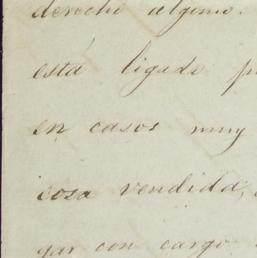 derecho alguno.
está ligado
en casos muy
cosa vendida,
gar con cargo